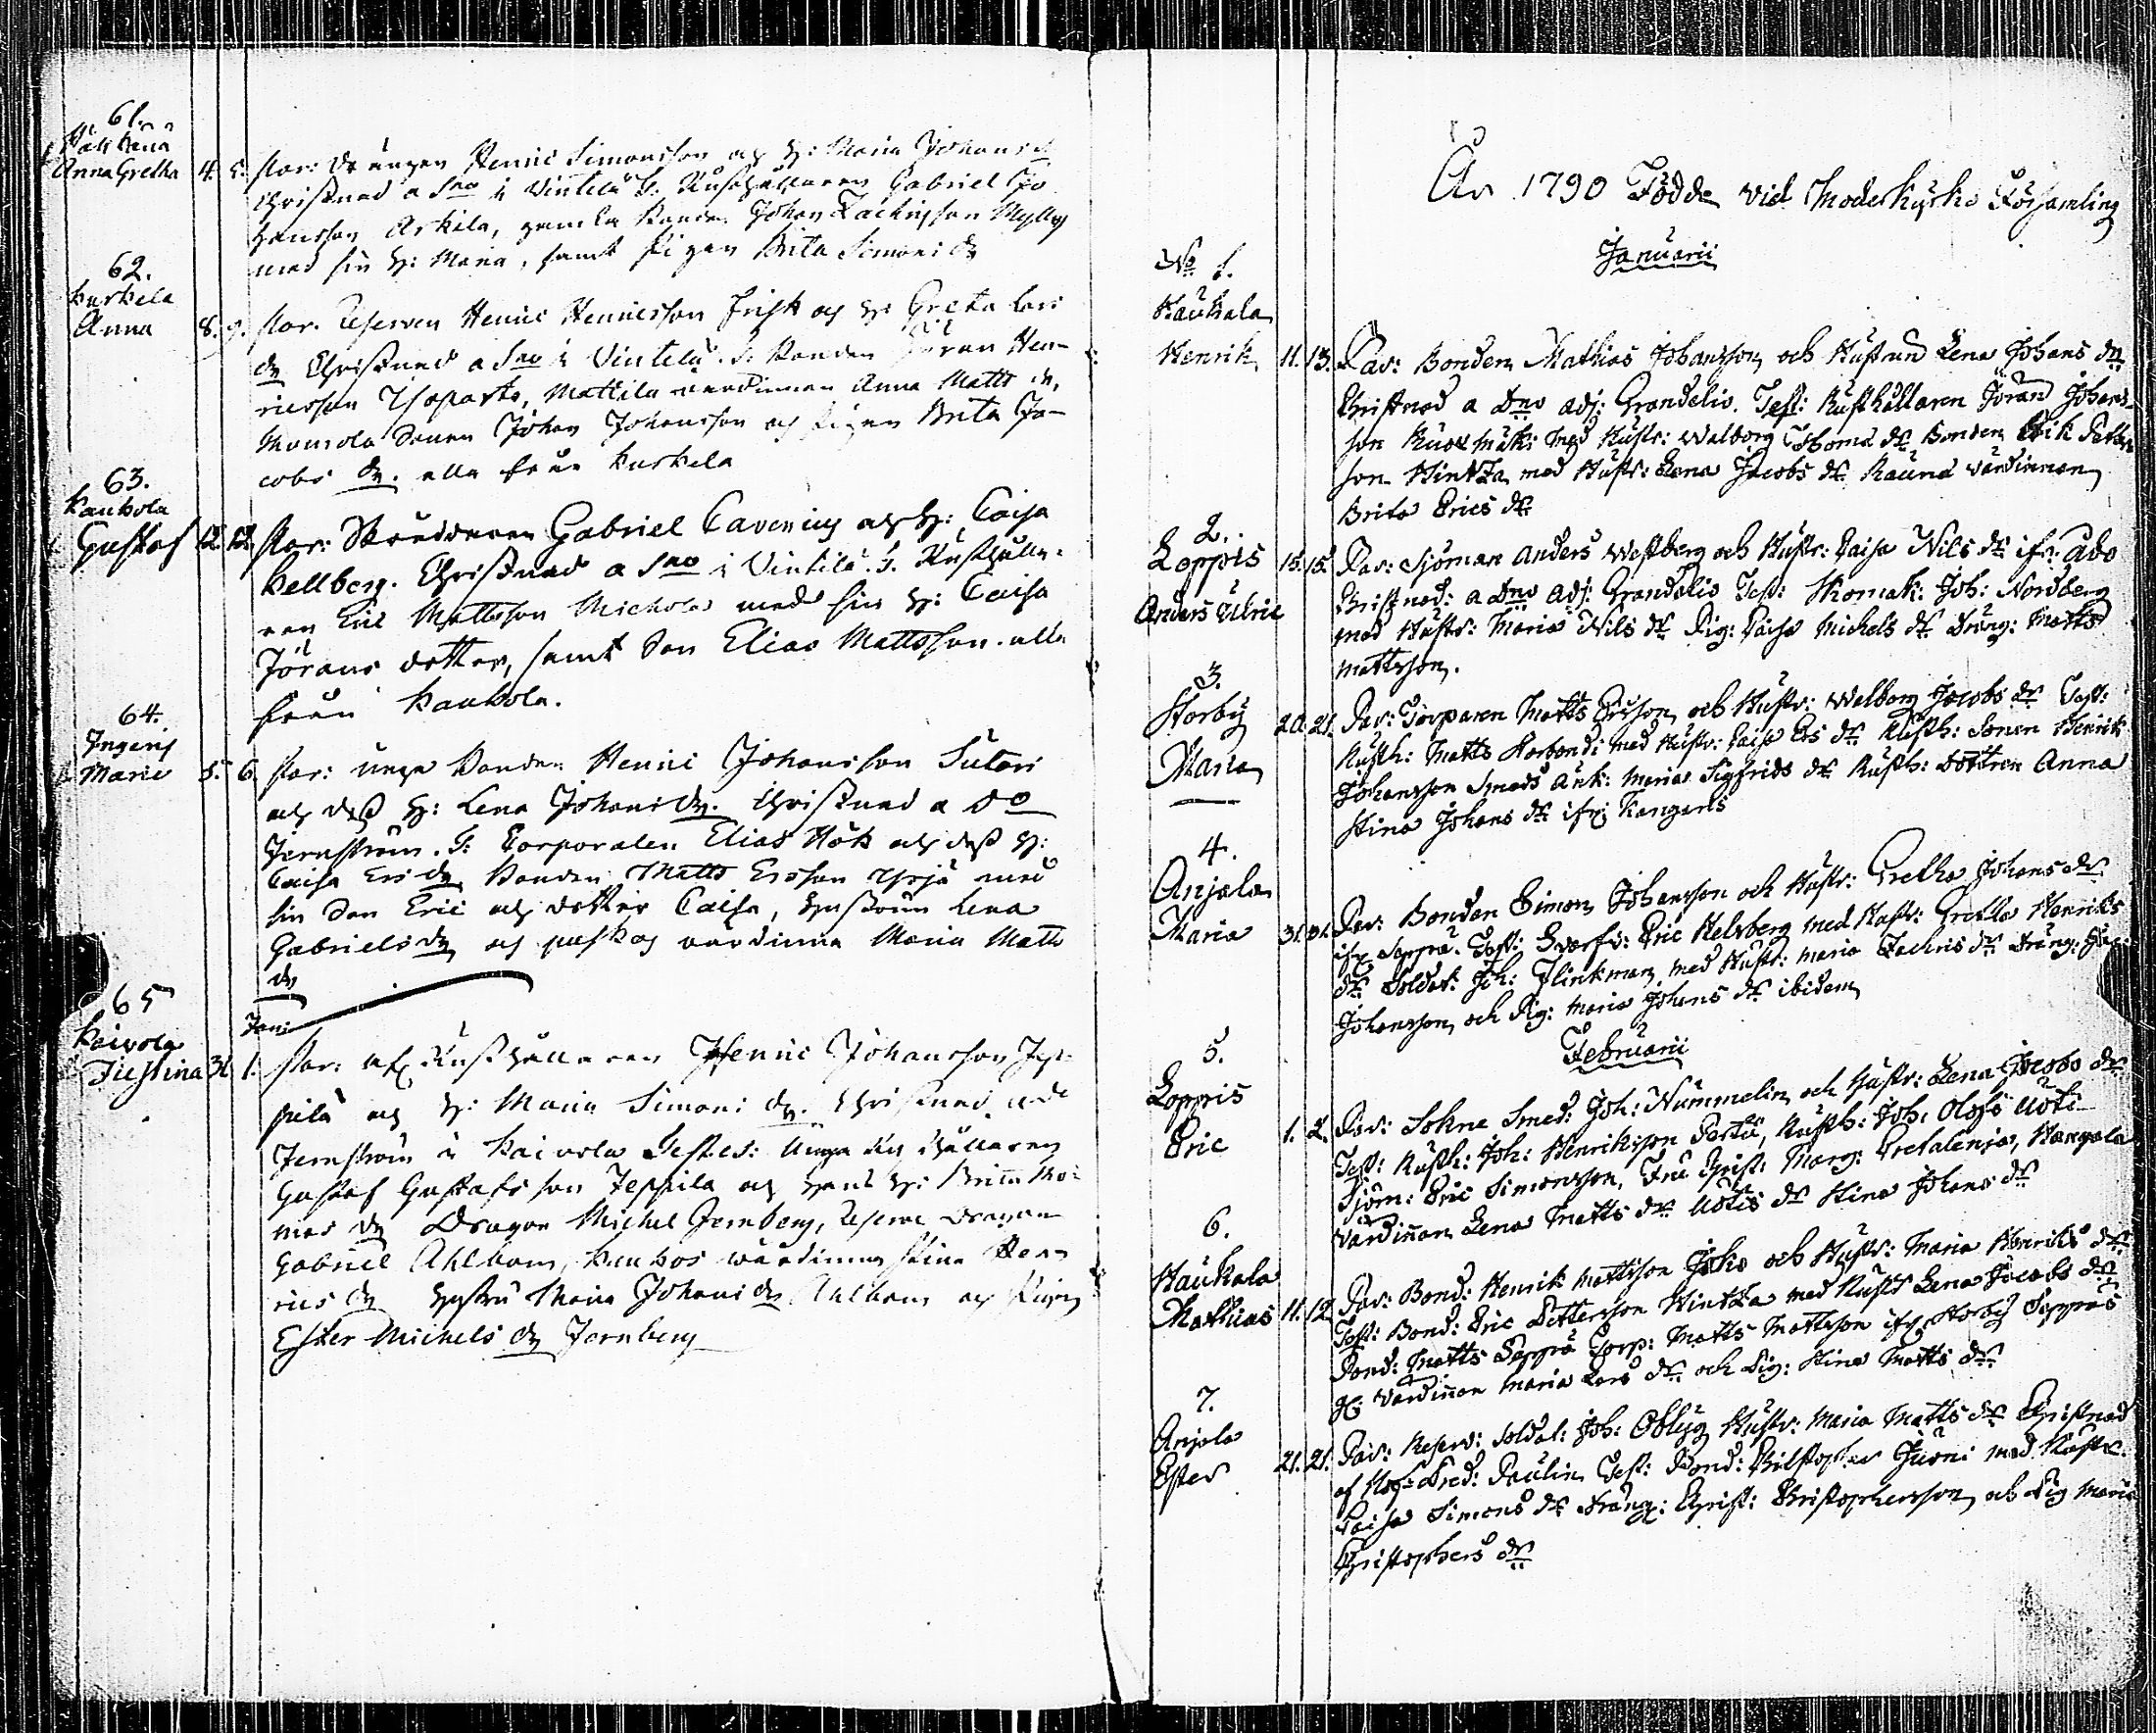 61.
Anna Gretha 4. 5. Par: Drängen Henric Simonsson och H: Maria Johans dr
Christnad a Sno i Vintelä T: Rusthållaren Gabriel Jo
hansson Arkila, gamla Bonden Johan Zachrisson Mylly
med sin H: Maria, samt Pigan Brita Simons dr
62.
Kurkela
Anna 8. 9. Par. Reserven Henric Henricsson Frisk och H: Greta Lars
dr Christnad a Sno i Vintelä. T: Bonden Jöran Hen-
ricsson, Mattila värdinnan Anna Matts dr,
Sonen Johan Johansson och Pigan Brita Ja-
cobs dr. alla från Kurkela
63.
Kaukola
Gustaf 12. 12. Par: Skräddaren Gabriel Cavenius och H: Caisa
Hellberg. Christnad a Sno i Vintelä. T. Rusthålla-
ren Eric Mattsson Michola med sin H: Caisa
Jörans dotter, samt Son Elias Mattsson. alla
från Kaukola.
64.
Ingeris
Maria 5. 6. Par: unga Bonden Henric Johansson Sutari
och dess H: Lena Johans dr. Christnad a Do
Jernström. T: Corporalen Elias Hök och dess H:
Caisa Ers dr Bonden Matts Ersson Yrjä med
sin Son Eric och dotter Caisa, Hustrun Lena
Gabriels dr och värdinna Maria Matts
dr
65
Jan:
Kaivola
Justina 31. 1. Par: Rusthållaren Henric Johansson Jep-
pilä och H: Maria Simons dr. Christnad a Do
Jernström i Kaivola Testes: Unga Rusthållaren
Gustaf Gustafsson Jeppila och hans H: Brita Tho-
mas dr Dragon Michel Jernberg, Reserve Dragon
Gabriel Ahlbom, värdinnan Stina Hen-
rics dr Hustru Maria Johans dr Ahlbom och Pigan
Ester Michels dr Jernberg
År 1790 Födde vid Moderkyrko Församling
Januarii
No 1.
Haukala
Henrik 11. 13. Par: Bonden Mathias Johansson och Hustrun Lena Johans dr
Christnad a Dno Adj: Grandelio. Test: Rusthållaren Jöran Johans-
son med Hustr: Walborg Thoms dr Bonden Erik Petters-
son Hintza med Hustr: Lena Jacobs dr Rauna värdinnan
Brita Erics dr
2.
Loppis 15. 15. Par: Sjöman Anders Westberg och Hustr: Caisa Nils dr ifr: Åbo
Anders Ulric Christnad: a Dno Adj: Grandelio Test: Skomak: Joh: Nordberg
med Hustr: Maria Nils dr Pig: Caisa Michels dr Dräng: Matts
Mattsson.
3.
Storby 20. 21. Par: Torparen Matts Ersson och Hustr: Walborg Jacobs dr Test:
Maria Rusth: Matts Storbondi med Hustr: Caisa Ers dr Rusth: Sonen Henrik
Johansson Smeds Änk: Maria Sigfrids dr Rusth: Dottren Anna
Stina Johans dr ifr: Kangaris
4.
Anjala
Maria 31. 31. Par: Bonden Simon Johansson och Hustr: Gretha Johans dr
ifr Seppä. Test: Svarfv: Eric Helsberg med Hustr: Gretha Henriks
dr Soldat: Joh: Flinkman med Hustr: Maria Zachris dr Dräng:
Johansson och Pig: Maria Johans dr ibidem
Februarii
5.
Loppis
Eric 1. 2. Par: Sokne Smed: Joh: Nummelin och Hustr: Lena Jacobs dr
Test: Rusth: Joh: Henriksson Perttu, Rusth: Joh: Olofs Uoti
Sjöm: Eric Simonsson, Fru Christ: Marg: Pretalenia, Kangala
Värdinnan Lena Matts dr Uotis dr Stina Johans dr
6.
Haukala
Mathias 11. 12. Par: Bond: Henrik Mattsson och Hustr: Maria Henriks dr
Test: Bond: Eric Pettersson Hintza med Hustr Lena Jacobs dr
Bond: Matts Seppä Torp: Matts Mattsson ifr Storby Seppäs
Gl: värdinnan Maria Lars dr och Pig: Stina Matts dr
7.
Anjala
Ester 21. 21. Par: Reserv: Soldat: Joh: Öblyg Hustr: Maria Matts dr Christnad
af Paulin Test: Bond: Christopher Juoni med Hustr.
Caisa Simons dr Dräng: Christ: Christophersson och Pig Maria
Christophers dr